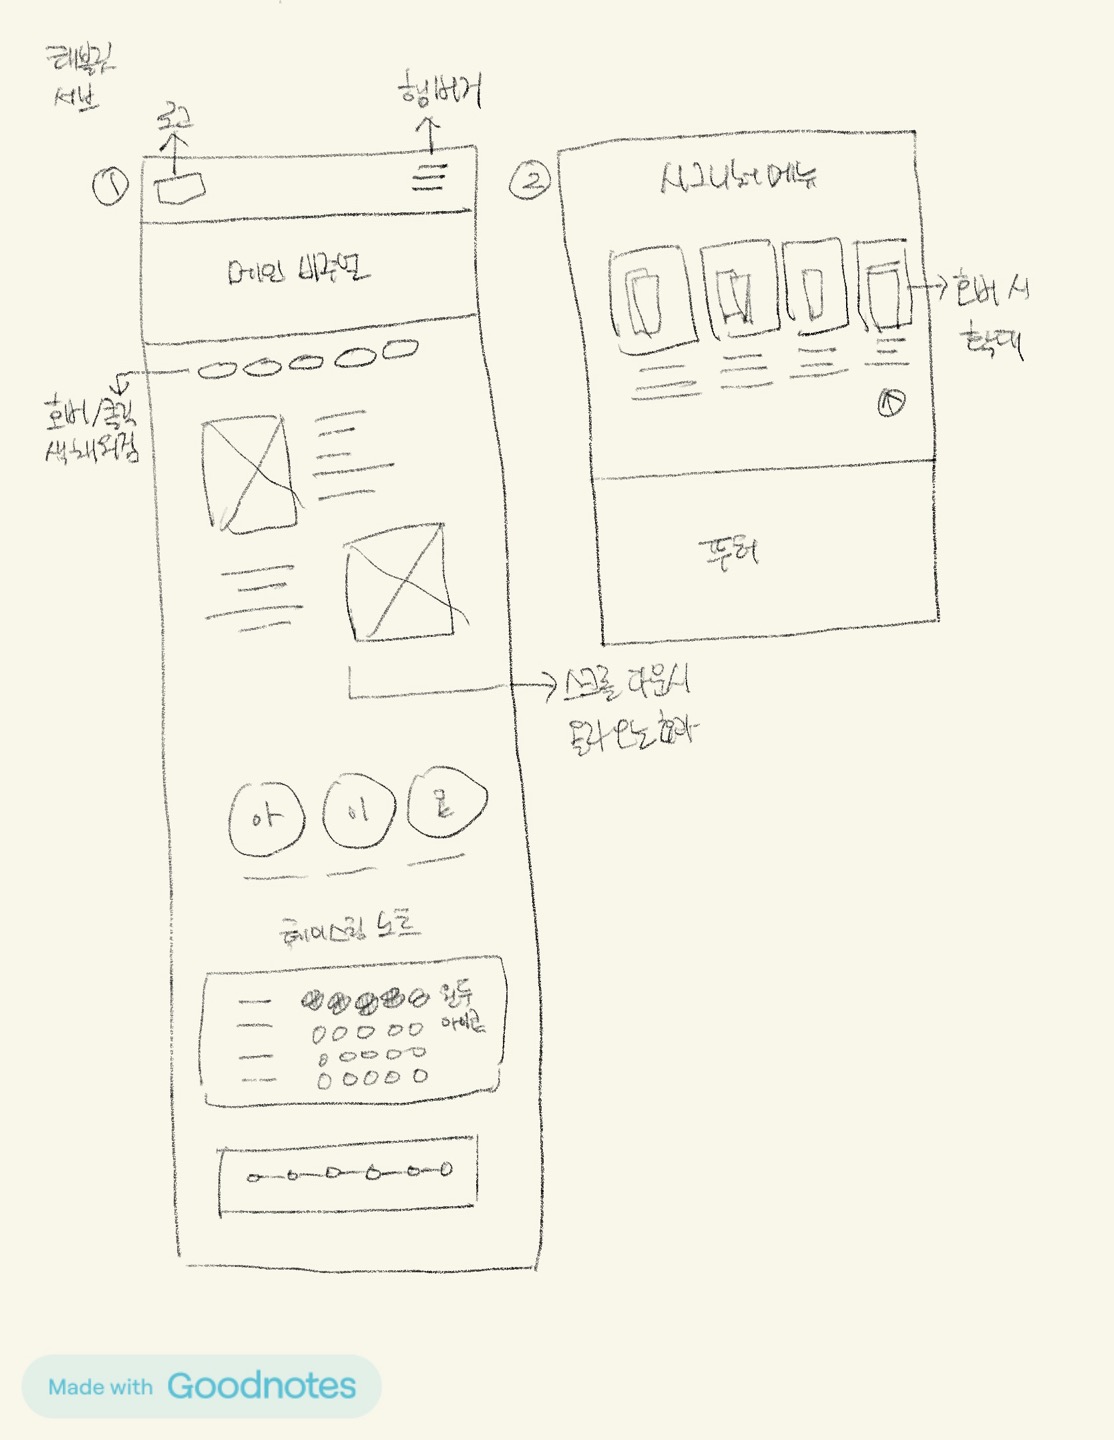 태블릿
서브
로고
햄버거
①
메인 비주얼
호버/클릭
색 채워짐
스크롤 다운시
올라오는 효과
아
이
콘
테이스팅 노트
원두
아이콘
②
시그니처 메뉴
호버 시
확대
푸터
Made with Goodnotes